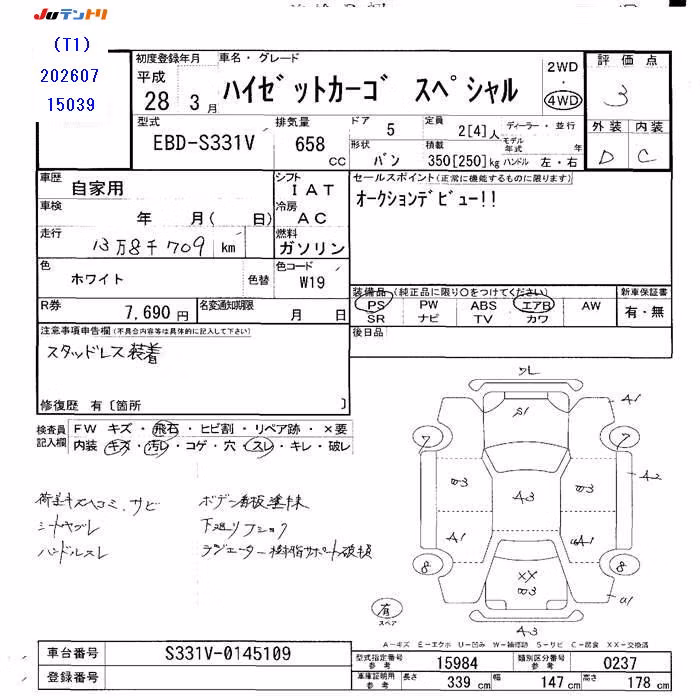 JUテントリ
(T1)
202607
15039
初度登録年月
平成
28 3 月
車名・グレード
ハイゼットカーゴ スペシャル
2WD
・
4WD
評価点
3
外装 内装
D C
型式
EBD-S331V
排気量
658 CC
ドア 5
定員 2[4]人
ディーラー・並行
形状 バン
積載 350[250]kg
モデル年式 年
ハンドル 左・右
車歴
自家用
シフト
IAT
車検
年 月( 日)
冷房
AC
走行
13万8千709 km
燃料
ガソリン
セールスポイント(正常に機能するものに限ります)
オークションデビュー!!
色
ホワイト
色替
色コード
W19
R券
7,690円
名変通知期限
月 日
装備品(純正品に限り○をつけてください)
PS PW ABS エアB AW
SR ナビ TV カワ
新車保証書
有・無
後日品
注意事項申告欄(不具合内容等は具体的に記入して下さい)
スタッドレス装着
修復歴 有〔箇所 〕
検査員記入欄
FW キズ・飛石・ヒビ割・リペア跡・×要
内装 キズ・汚レ・コゲ・穴・スレ・キレ・破レ
荷室キズヘコミ、サビ
シートヤブレ
ハンドルスレ
ボデー看板塗抹
下廻りフショク
ラジエーター樹脂サポート破損
S1
A1
7
7
A3
A2
A1
8
8
XX
a1
A-3
有
スペア
A-キズ E-エクボ U-凹み W-補修跡 S-サビ C-腐食 XX-交換済
車台番号
S331V-0145109
登録番号
型式指定番号 参考
15984
類別区分番号 参考
0237
車庫証明用 参考
長さ 339 cm
幅 147 cm
高さ 178 cm